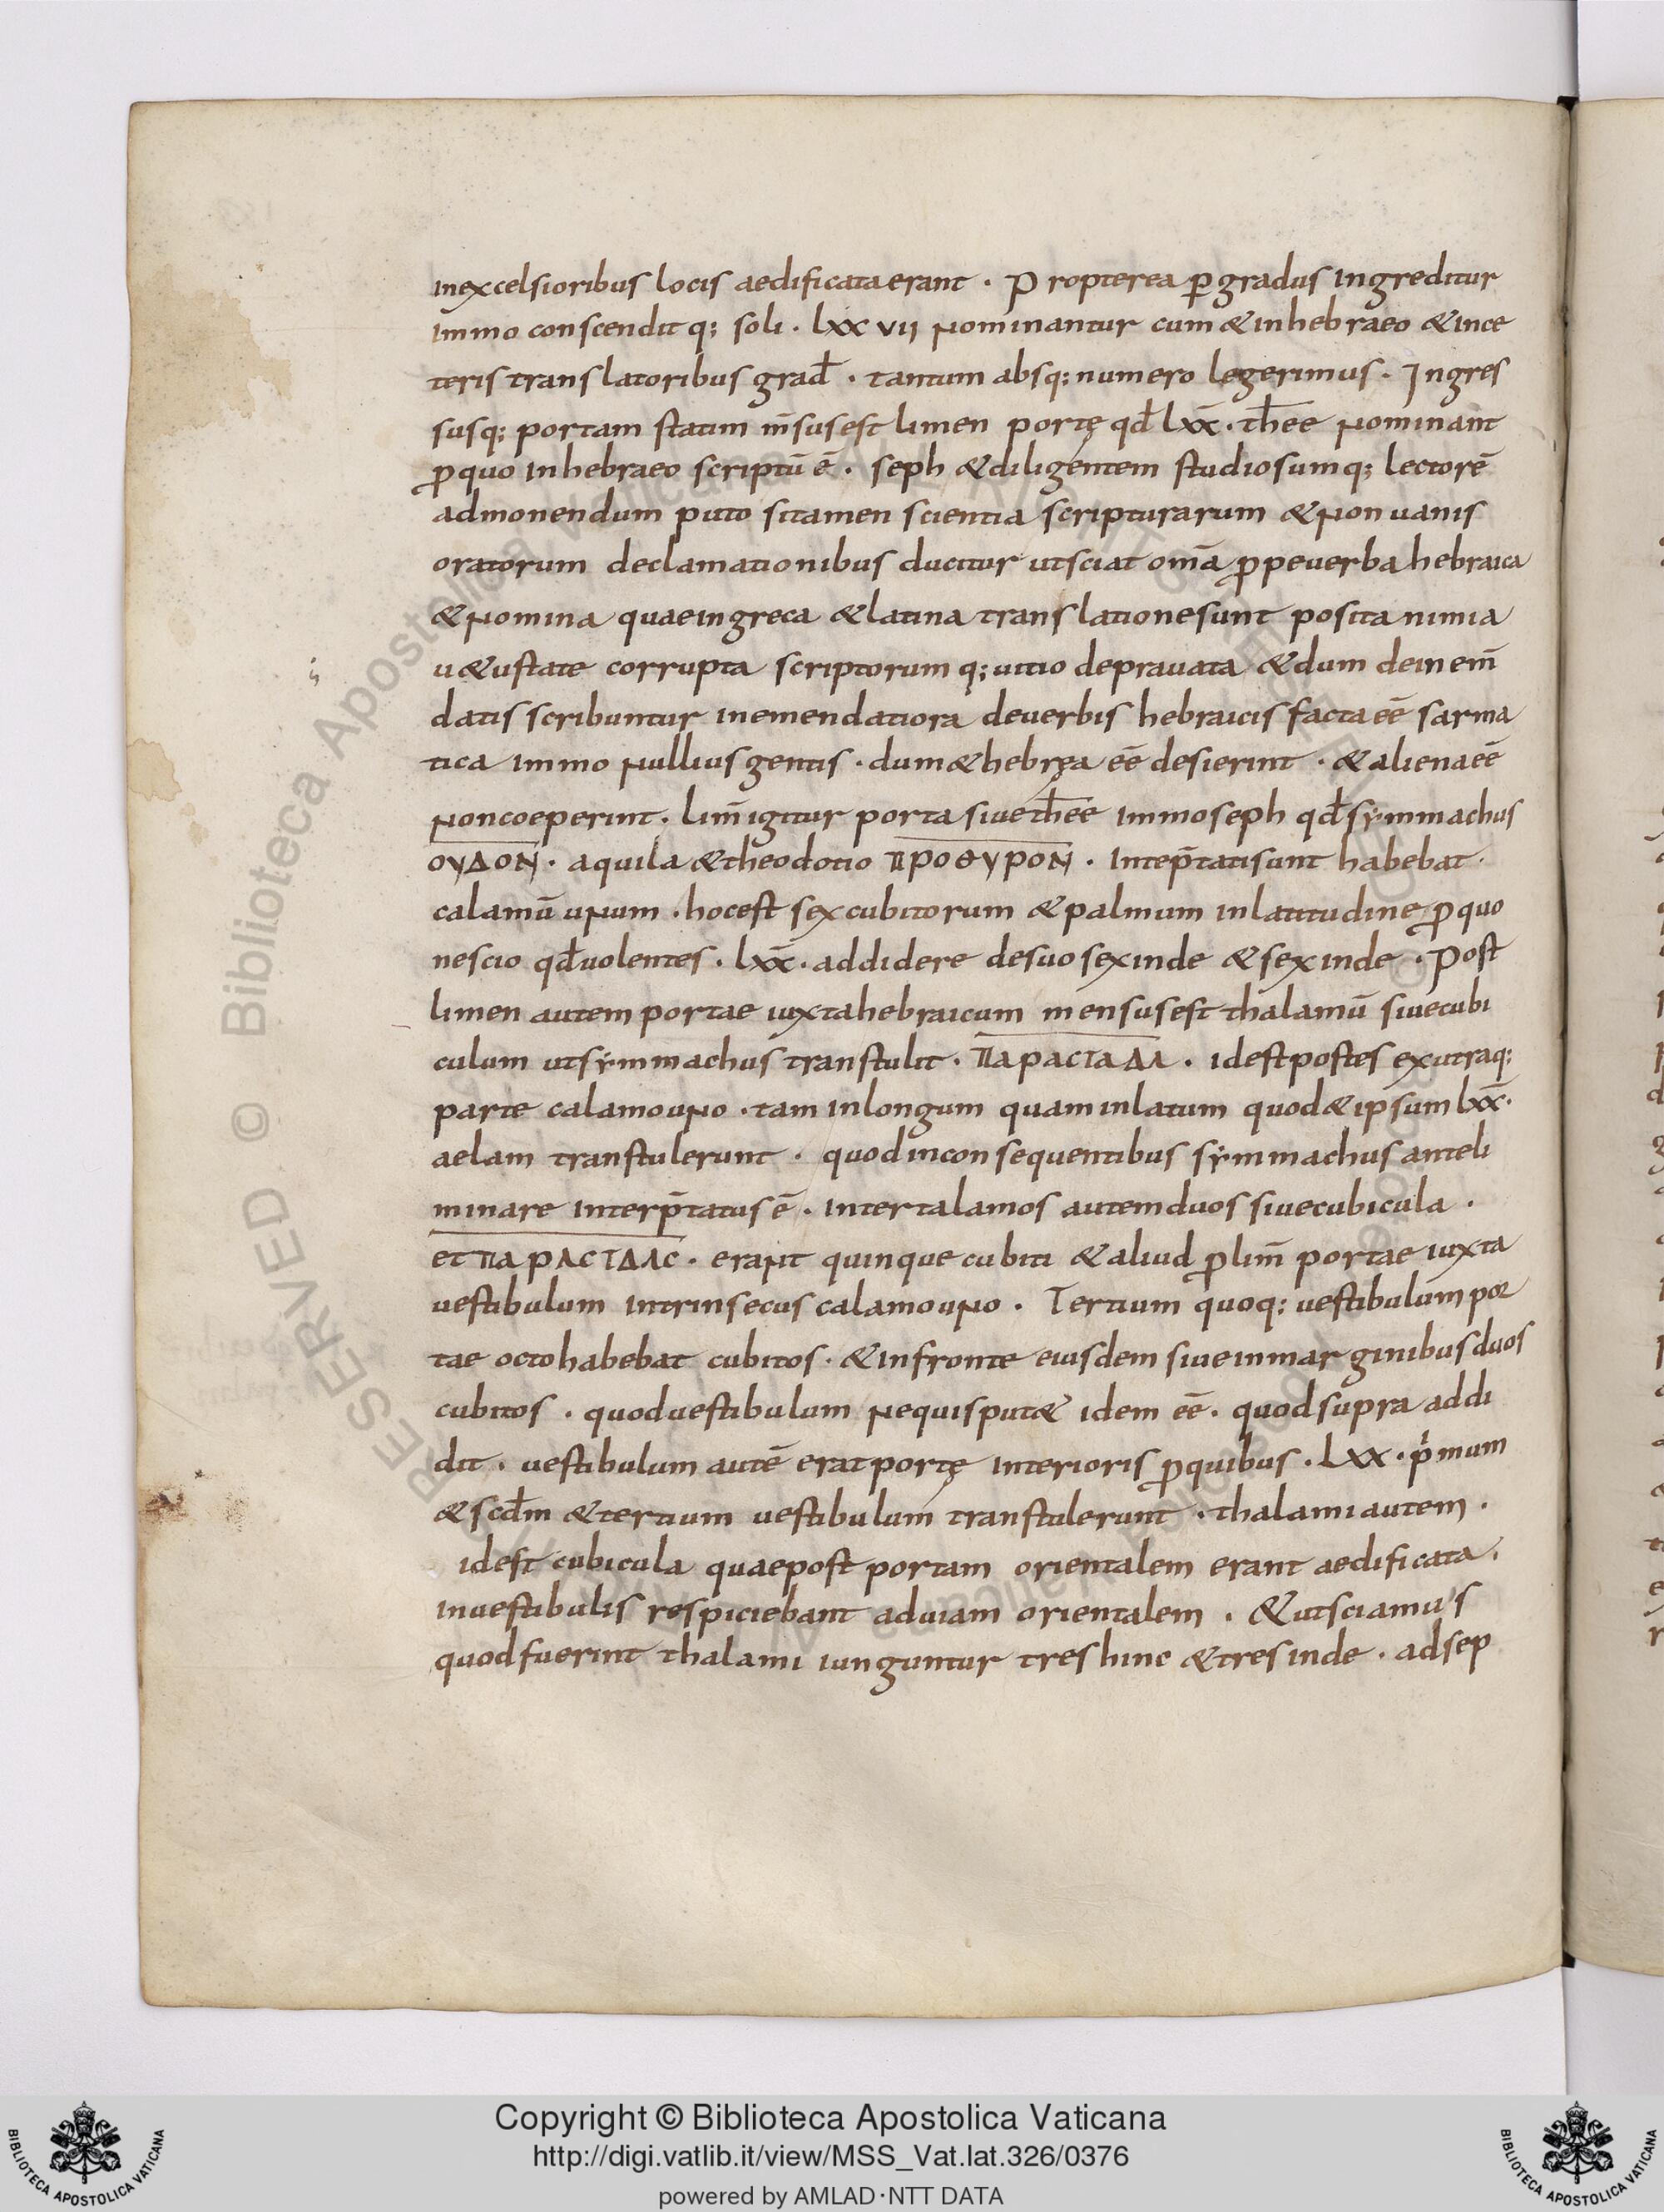 inexcelsioribus locis aedificata erant · Propterea ꝑ gradus ingreditur
immo conscendit q; soli · lxx vii nominantur cum & inhebraeo & ince
teris translatoribus grad̄ · tantum absq; numero legerimus · Ingres
susq; portam statim m̄susest limen portę qd̄ lxx̄ · th̄ee nominant
ꝓquo inhebraeo scriptū ē · seph & diligentem studiosumq; lectorē
admonendum puto sitamen scientia scripturarum & non uanis
oratorum declamationibus ducitur utsciat om̄a ꝓpeuerba hebraica
& nomina quae ingreca & latina translatione sunt posita nimia
u&ustate corrupta scriptorum q; uitio deprauata & dum dein em̄
datis scribuntur inemendatiora deuerbis hebraicis facta eē sarma
tica immo nullius gentis · dum & hebręa eē desierint · & aliena eē
non coeperint · lim̄ igitur porta siue th̄ee immo seph qd̄ symmachus
ουΔον · aquila & theodotio προθυρον · intep̄tati sunt habebat ·
calamū unum · hocest sex cubitorum & palmum inlatitudine ꝓquo
nescio qd̄ uolentes · lxx̄ · addidere desuo sexinde & sexinde · Post
limen autem portae iuxta hebraicum mensus est thalamū siue cubi
culum ut symmachus transtulit · παραστάΔΙ · idest postes exutraq;
parte calamo uno · tam inlongum quam inlatum quod & ipsum lxx̄ ·
aelam transtulerunt · quod inconsequentibus symmachus anteli
minare interp̄tatus ē · inter talamos autem duos siue cubicula ·
et παραcταΔας · erant quinque cubiti & aliud ꝓ lim̄ portae iuxta
uestibulum intrinsecus calamo uno · Tertium quoq; uestibulum por
tae octo habebat cubitos · & infronte eiusdem siue inmarginibus duos
cubitos · quod uestibulum nequis put& idem eē · quod supra addi
dit · uestibulum autē erat portę interioris ꝓquibus · Lxx · pͥmum
& scd̄m & tertium uestibulum transtulerunt · thalami autem ·
idest cubicula quae post portam orientalem erant aedificata ·
inuestibulis respiciebant aduiam orientalem · & utsciamus
quod fuerint thalami iunguntur tres hinc & tres inde · adsep
Copyright © Biblioteca Apostolica Vaticana
http://digi.vatlib.it/view/MSS_Vat.lat.326/0376
powered by AMLAD·NTT DATA
BIBLIOTECA APOSTOLICA VATICANA
BIBLIOTECA APOSTOLICA VATICANA